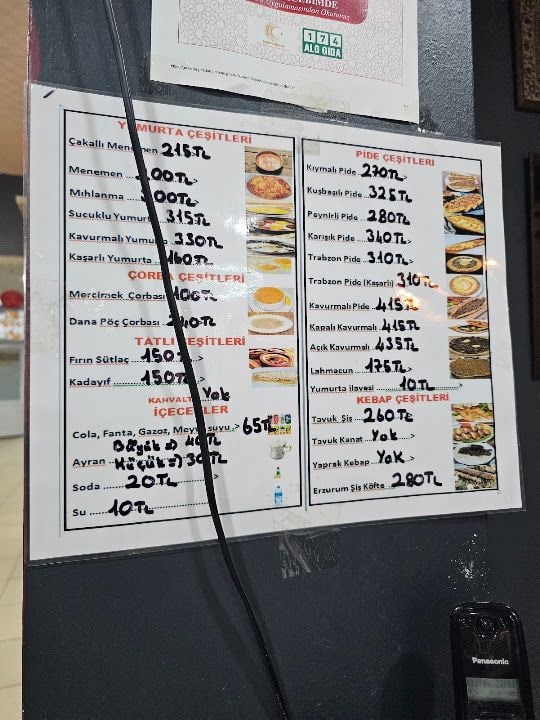 Uygulamasından Okutunuz
174
ALO GIDA
YUMURTA ÇEŞİTLERİ
Çakallı Menemen 215TL
Menemen
Mıhlanma
Sucuklu Yumurta 315TL
Kavurmalı Yumurta 330TL
Kaşarlı Yumurta 160TL
ÇORBA ÇEŞİTLERİ
Mercimek Çorbası 100TL
Dana Pöç Çorbası
TATLI ÇEŞİTLERİ
Fırın Sütlaç 150TL
Kadayıf 150TL
KAHVALTI Yok
İÇECEKLER
Cola, Fanta, Gazoz, Meyve suyu 65TL
Büyük 40TL
Ayran Küçük 30TL
Soda 20TL
Su 10TL
PİDE ÇEŞİTLERİ
Kıymalı Pide 270TL
Kuşbaşılı Pide 325TL
Peynirli Pide 280TL
Karışık Pide 340TL
Trabzon Pide 310TL
Trabzon Pide (Kaşarlı) 310TL
Kavurmalı Pide 415TL
Kapalı Kavurmalı 415TL
Açık Kavurmalı 435TL
Lahmacun 175TL
Yumurta ilavesi 10TL
KEBAP ÇEŞİTLERİ
Tavuk Şis 260TL
Tavuk Kanat Yok
Yaprak Kebap Yok
Erzurum Şis Köfte 280TL
Panasonic